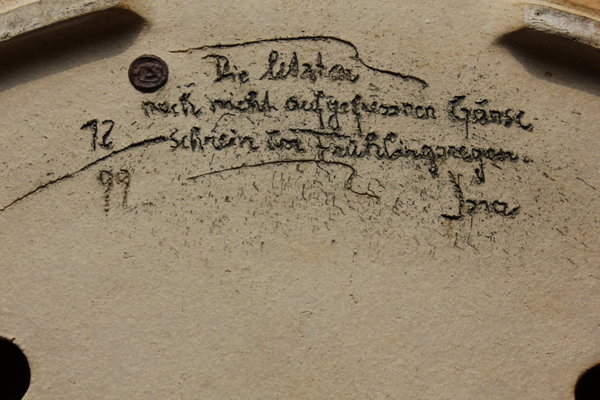 Die letzten
noch nicht aufgefressnen Gänse
schrein im Frühlingsregen.
12
99